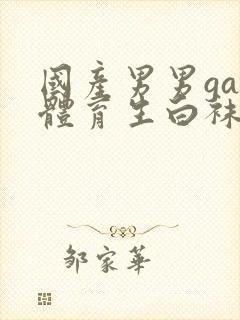 國產男男ga
體育生白袜
鄒家華